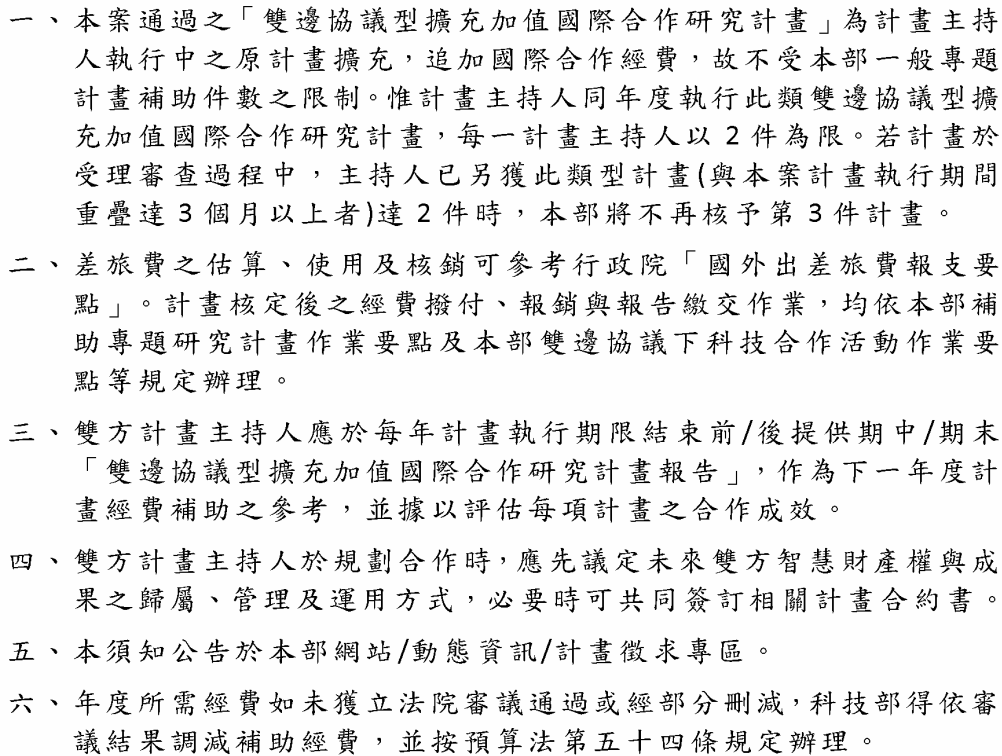 一、本案通過之「雙邊協議型擴充加值國際合作研究計畫」為計畫主持
人執行中之原計畫擴充，追加國際合作經費，故不受本部一般專題
計畫補助件數之限制。惟計畫主持人同年度執行此類雙邊協議型擴
充加值國際合作研究計畫，每一計畫主持人以 2 件為限。若計畫於
受理審查過程中，主持人已另獲此類型計畫(與本案計畫執行期間
重疊達 3 個月以上者)達 2 件時，本部將不再核予第 3 件計畫。
二、差旅費之估算、使用及核銷可參考行政院「國外出差旅費報支要
點」。計畫核定後之經費撥付、報銷與報告繳交作業，均依本部補
助專題研究計畫作業要點及本部雙邊協議下科技合作活動作業要
點等規定辦理。
三、雙方計畫主持人應於每年計畫執行期限結束前/後提供期中/期末
「雙邊協議型擴充加值國際合作研究計畫報告」，作為下一年度計
畫經費補助之參考，並據以評估每項計畫之合作成效。
四、雙方計畫主持人於規劃合作時，應先議定未來雙方智慧財產權與成
果之歸屬、管理及運用方式，必要時可共同簽訂相關計畫合約書。
五、本須知公告於本部網站/動態資訊/計畫徵求專區。
六、年度所需經費如未獲立法院審議通過或經部分刪減，科技部得依審
議結果調減補助經費，並按預算法第五十四條規定辦理。